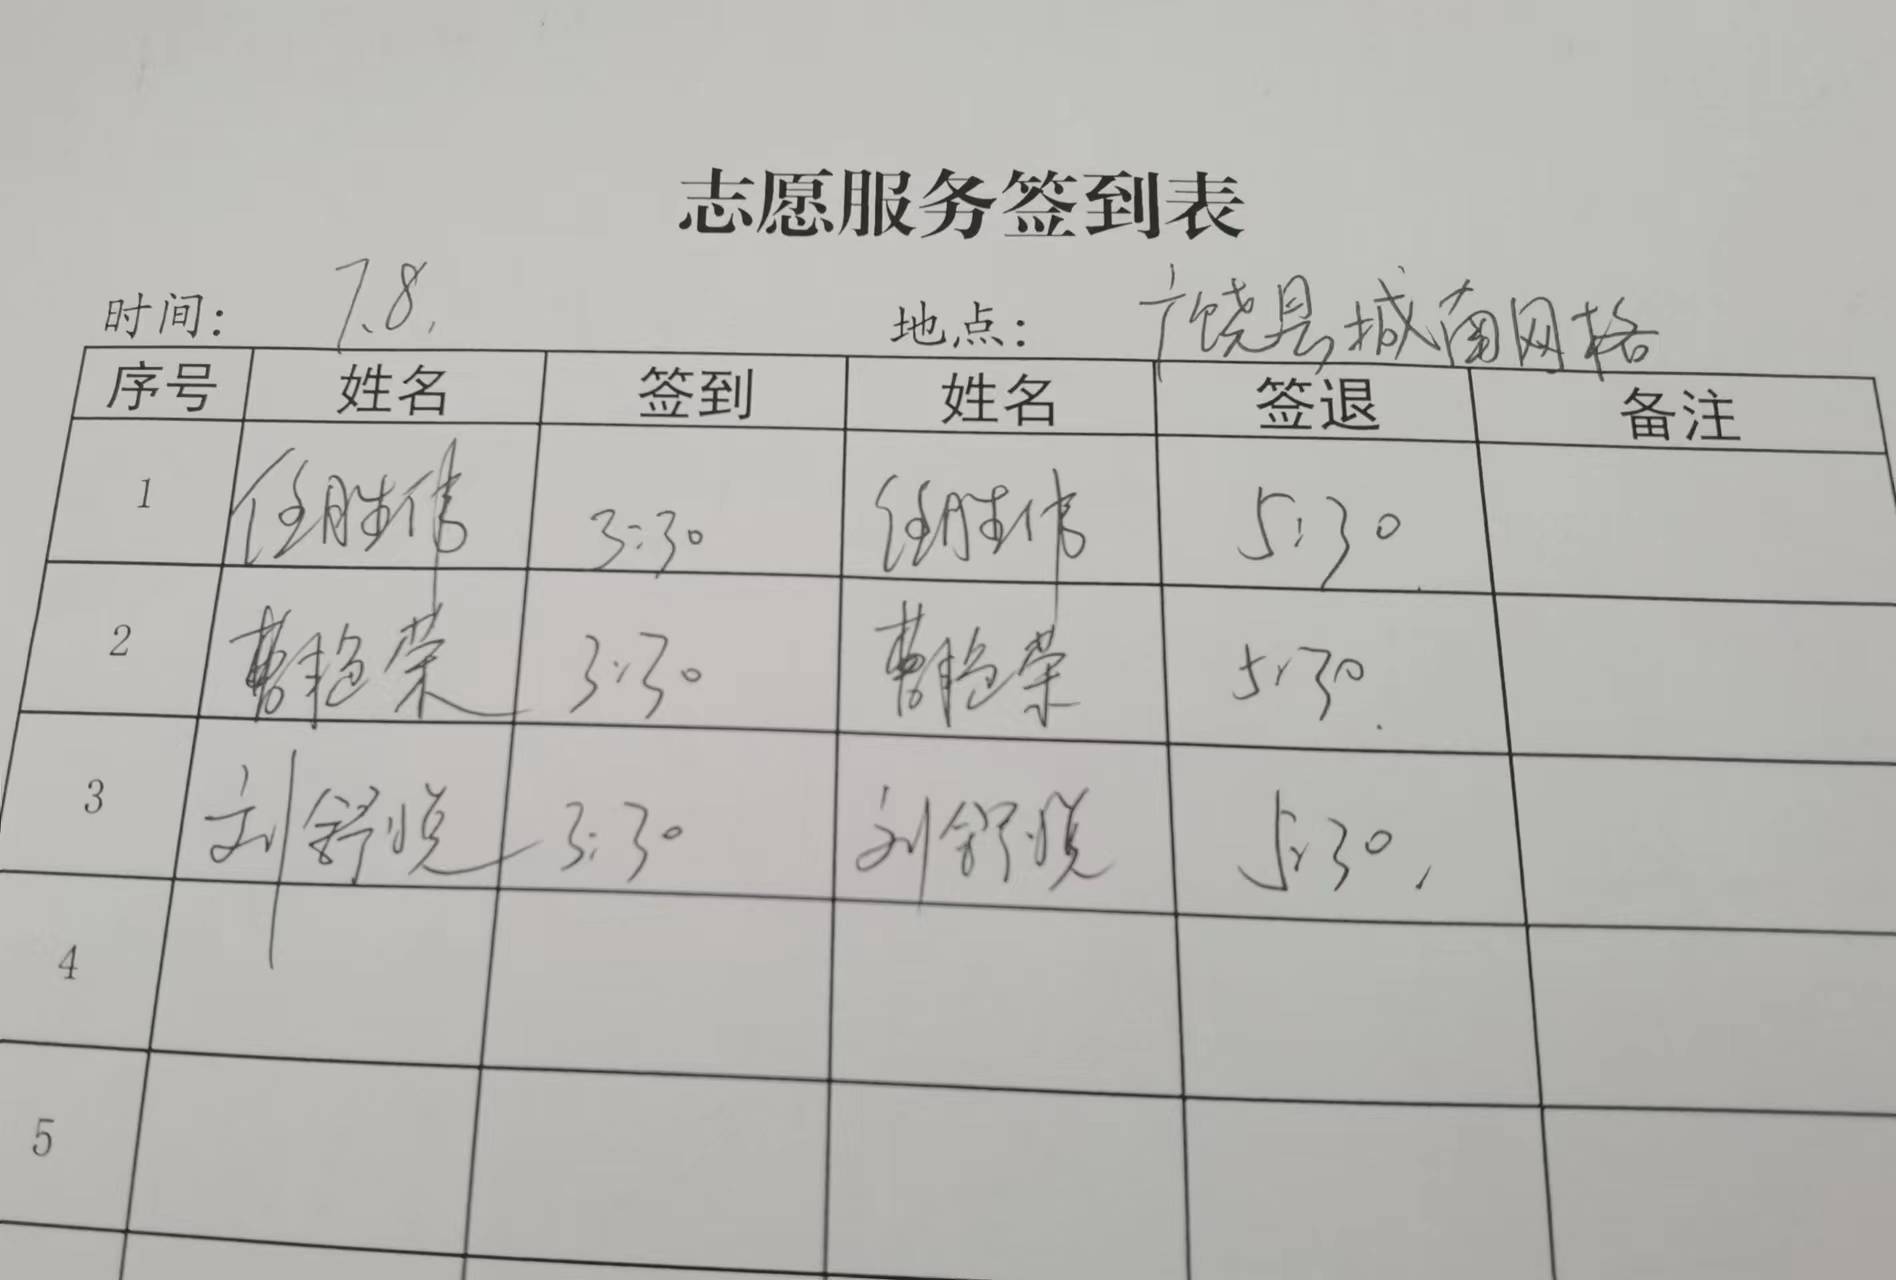 志愿服务签到表
时间: 7.8. 地点: 广饶县城南网格
序号 姓名 签到 姓名 签退 备注
1 任胜伟 3:30 任胜伟 5:30
2 曹艳荣 3:30 曹艳荣 5:30.
3 刘舒悦 3:30 刘舒悦 5:30.
4
5